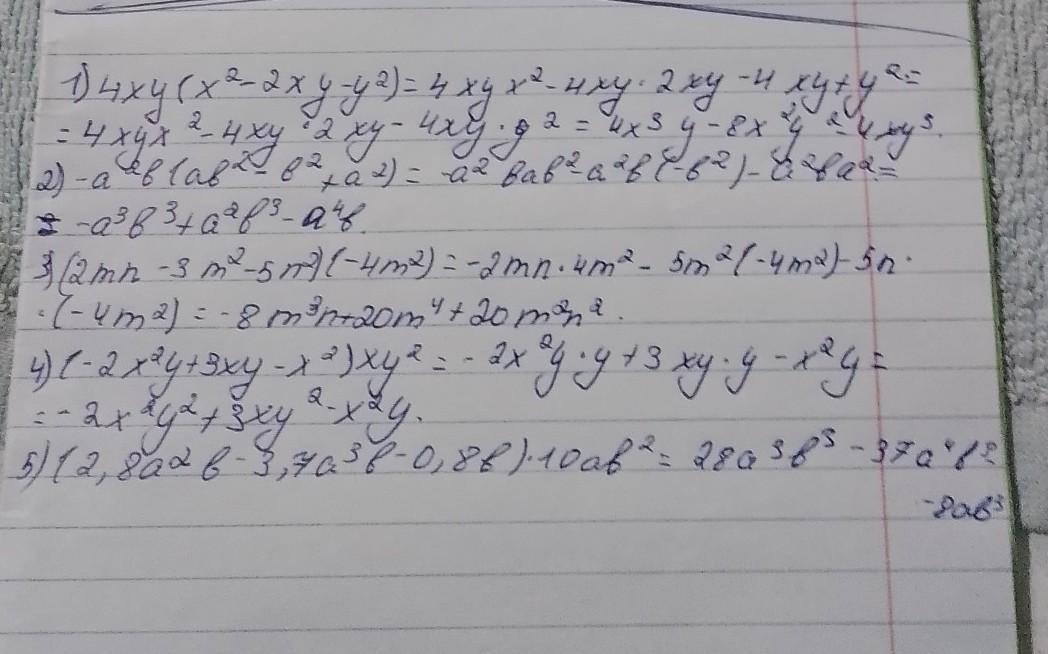 1) 4xy(x²-2xy-y²)=4xyx²-4xy·2xy-4xy+y²=
=4xyx²-4xy·2xy-4xy·y²=4x³y-8x²y²-4xy³.
2) -a²b(ab²-b²+a²)=-a²bab²-a²b(-b²)-a²ba²=
= -a³b³+a²b³-a⁴b.
3) (2mn-3m²-5n²)(-4m²)=-2mn·4m²-5m²(-4m²)-5n·
·(-4m²)=-8m³n+20m⁴+20m²n².
4) (-2x²y+3xy-x²)xy²=-2x²y·y+3xy·y-x²y=
=-2x²y²+3xy²-x²y.
5) (2,8a²b-3,7a³b-0,8b)·10ab²=28a³b³-37a⁴b³
-8ab³